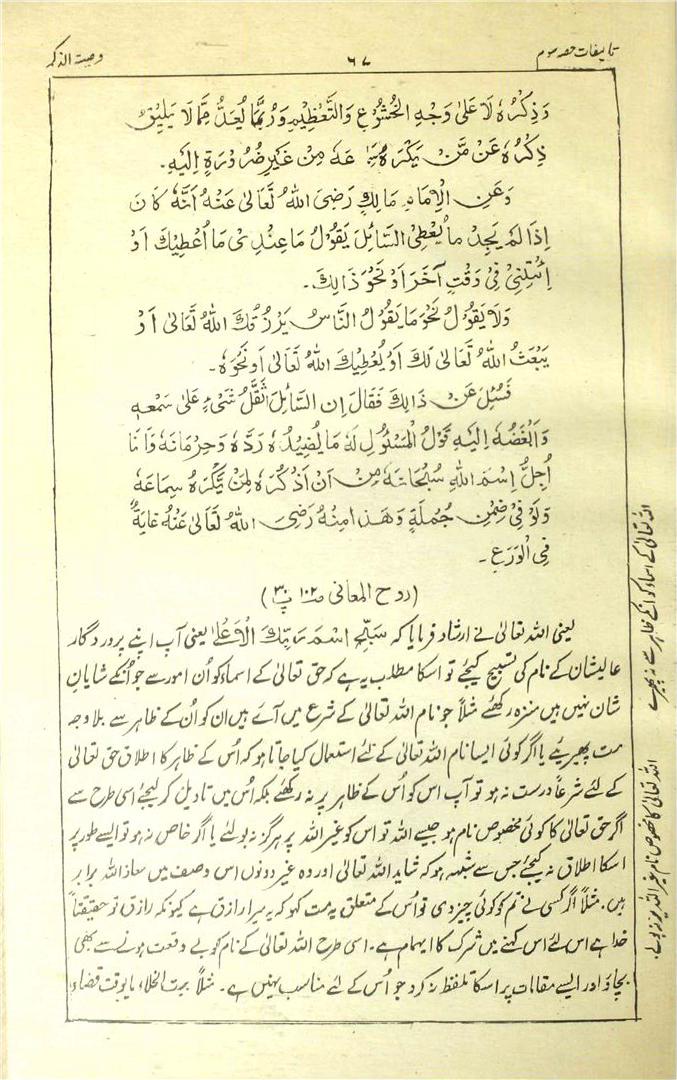 تالیفات حصہ سوم
۶۷
وصیۃ الذکر
وَذِكْرُهٗ لَا عَلٰى وَجْهِ الْخُشُوْعِ وَالتَّعْظِيْمِ وَرُبَّمَا يُعَدُّ مِمَّا لَا يَلِيْقُ
ذِكْرُهٗ عَنْ مَّنْ يَكْرَهُ سِمَاعَهٗ مِنْ غَيْرِ ضُرُوْرَةٍ اِلَيْهِ۔
وَعَنِ الْاِمَامِ مَالِكٍ رَضِىَ اللهُ تَعَالىٰ عَنْهُ اَنَّهٗ كَانَ
اِذَا لَمْ يَجِدْ مَا يُعْطِى السَّائِلَ يَقُوْلُ مَا عِنْدِىْ مَا اُعْطِيْكَ اَوْ
اِئْتِنِىْ فِىْ وَقْتٍ آخَرَ اَوْ نَحْوَ ذَالِكَ۔
وَلَا يَقُوْلُ نَحْوَ مَا يَقُوْلُ النَّاسُ يَرْزُقُكَ اللهُ تَعَالىٰ اَوْ
يَبْعَثُ اللهُ تَعَالىٰ لَكَ اَوْ يُعْطِيْكَ اللهُ تَعَالىٰ اَوْ نَحْوَهٗ۔
فَسُئِلَ عَنْ ذَالِكَ فَقَالَ اِن السَّائِلَ اَثْقَلُ شَىْءٍ عَلٰى سَمْعِهٖ
وَاَبْغَضُهٗ اِلَيْهِ قَوْلُ الْمَسْئُوْلِ لَهٗ مَا يُفِيْدُهٗ رَدَّهٗ وَحِرْمَانَهٗ وَاَنَا
اُجِلُّ اِسْمَ اللهِ سُبْحَانَهٗ مِنْ اَنْ اَذْكُرَهٗ لِمَنْ يَّكْرَهُ سِمَاعَهٗ
وَلَوْ فِىْ ضِمْنِ جُمْلَةٍ وَهٰذَا مِنْهُ رَضِىَ اللهُ تَعَالىٰ عَنْهُ غَايَةٌ
فِى الْوَرَعِ۔
(روح المعانی ص۱۰۲ پ۳۰)
یعنی اللہ تعالیٰ نے ارشاد فرمایا کہ سَبِّحِ اسْمَ رَبِّكَ الْاَعْلٰى یعنی آپ اپنے پروردگار
عالیشان کے نام کی تسبیح کیجئے تو اسکا مطلب یہ ہے کہ حق تعالیٰ کے اسماء کو اُن امور سے جو اُنکے شایانِ
شان نہیں ہیں منزہ رکھئے مثلاً جو نام اللہ تعالیٰ کے شرع میں آئے ہیں ان کو اُن کے ظاہر سے بلا وجہ
مت پھیریئے یا اگر کوئی ایسا نام اللہ تعالیٰ کے لئے استعمال کیا جاتا ہو کہ اُس کے ظاہر کا اطلاق حق تعالیٰ
کے لئے شرعاً درست نہ ہو تو آپ اس کو اُس کے ظاہر پر نہ رکھئے بلکہ اُس میں تاویل کر لیجئے اسی طرح سے
اگر حق تعالیٰ کا کوئی مخصوص نام ہو جیسے اللہ تو اس کو غیر اللہ پر ہرگز نہ بولئے یا اگر خاص نہ ہو تو ایسے طور پر
اسکا اطلاق نہ کیجئے جس سے شبہہ ہو کہ شاید اللہ تعالیٰ اور وہ غیر دونوں اس وصف میں معاذ اللہ برابر
ہیں۔ مثلاً اگر کسی نے تم کو کوئی چیز دی تو اُس کے متعلق یہ مت کہو کہ یہ میرا رازق ہے کیونکہ رازق تو حقیقتاً
خدا ہے اس لئے اس کہنے میں شرک کا ایہام ہے۔ اسی طرح اللہ تعالیٰ کے نام کو بے وقعت ہونے سے بھی
بچاؤ اور ایسے مقامات پر اسکا تلفظ نہ کرو جو اُس کے لئے مناسب نہیں ہے۔ مثلاً بیت الخلاء، یا بوقت قضاء
اللہ تعالیٰ کے اسماء کو انکے ظاہر سے نہ پھیرے
اللہ تعالیٰ کا مخصوص نام غیر اللہ پر نہ بولے۔